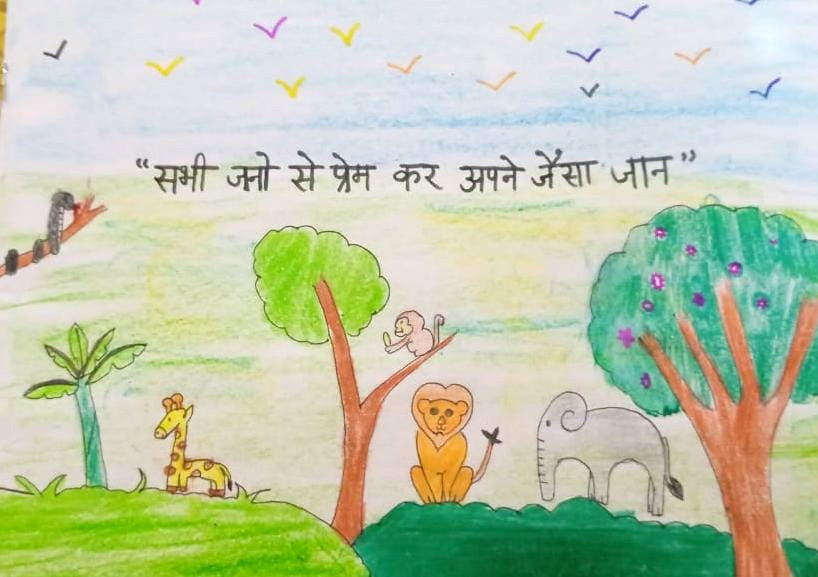 “सभी जनो से प्रेम कर अपने जैसा जान”